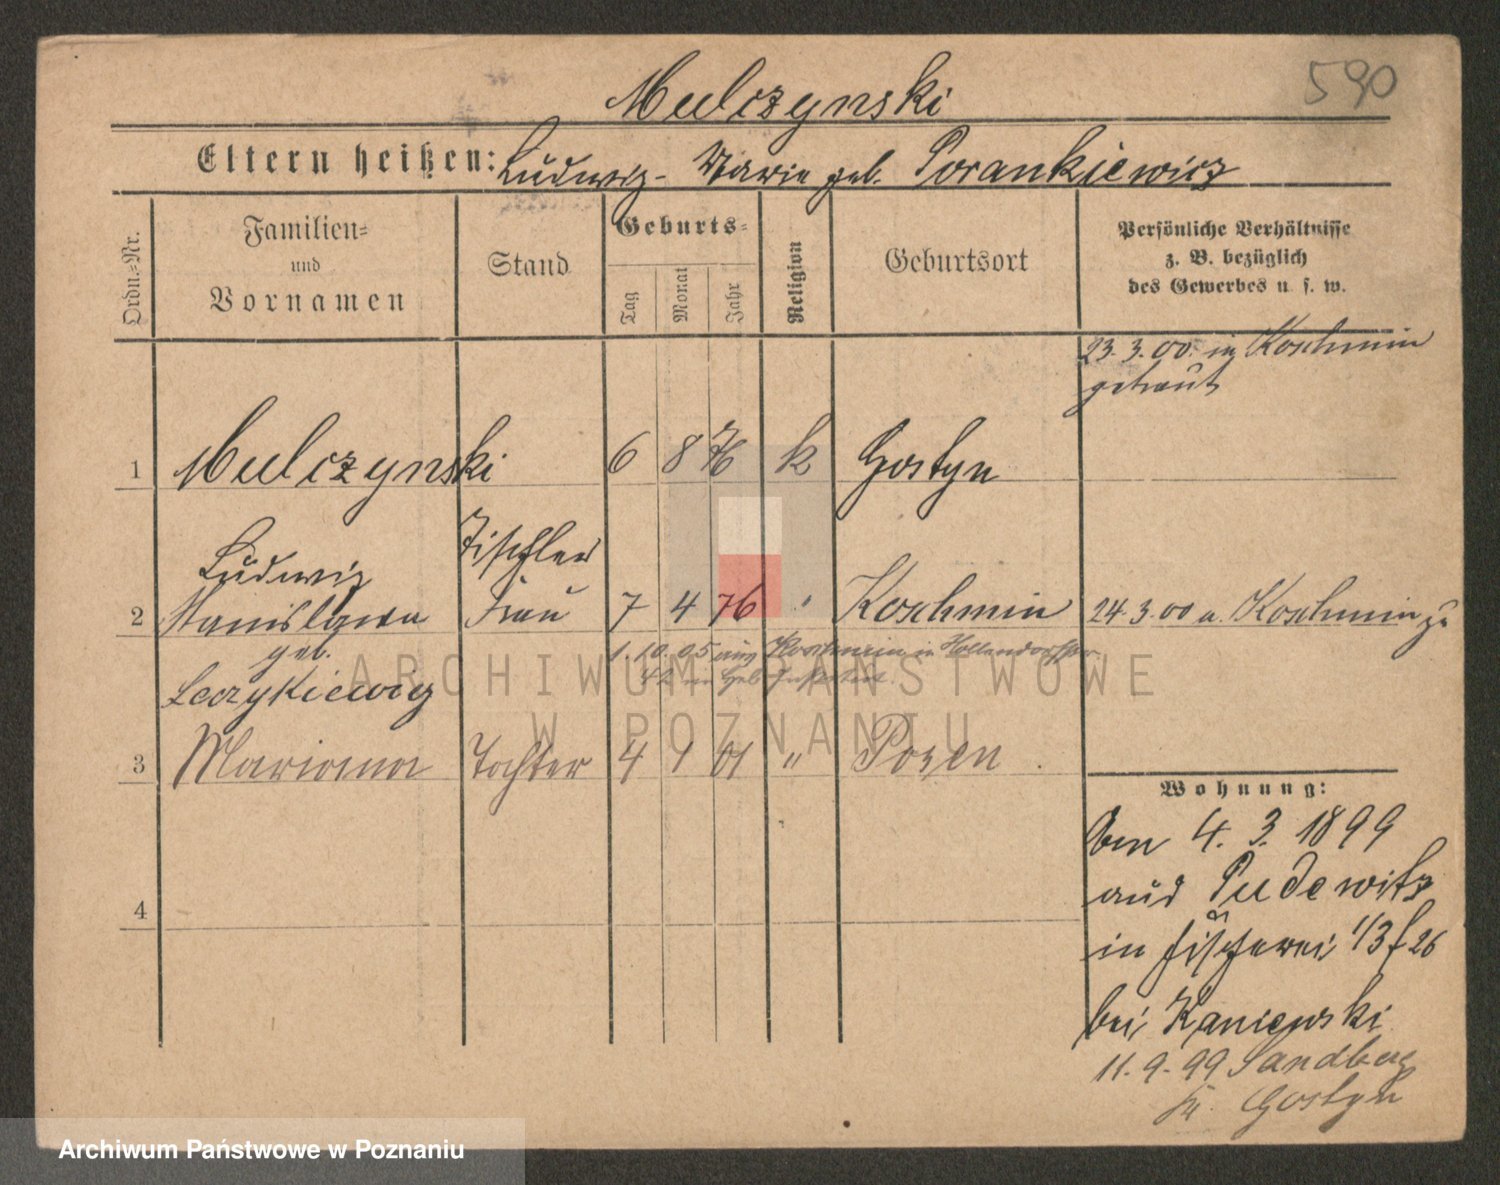 590
Mulczynski
Eltern heißen: Ludwig - Marie geb. Porankiewicz
Ordn.-Nr.
Familien-
und
Vornamen
Stand
Geburts-
Tag
Monat
Jahr
Religion
Geburtsort
Persönliche Verhältnisse
z. B. bezüglich
des Gewerbes u. s. w.
23. 3. 00. in Koschmin
getraut
1 Mulczynski 6 8 76 k Gostyn
Ludwig Tischler
2 Stanislawa Frau 7 4 76 " Koschmin 24. 3. 00 a. Koschmin zu
geb.
Leczykiewicz
1. 10. 05 aus Koschmin in
42
3 Marianna Tochter 4 1 01 " Posen
4
Wohnung:
Am 4. 3. 1899
aus Pudewitz
in Fischerei 1/3 f 26
bei Kaniewski
11. 9. 99 Sandberg
Kr. Gostyn
ARCHIWUM PAŃSTWOWE
W POZNANIU
Archiwum Państwowe w Poznaniu